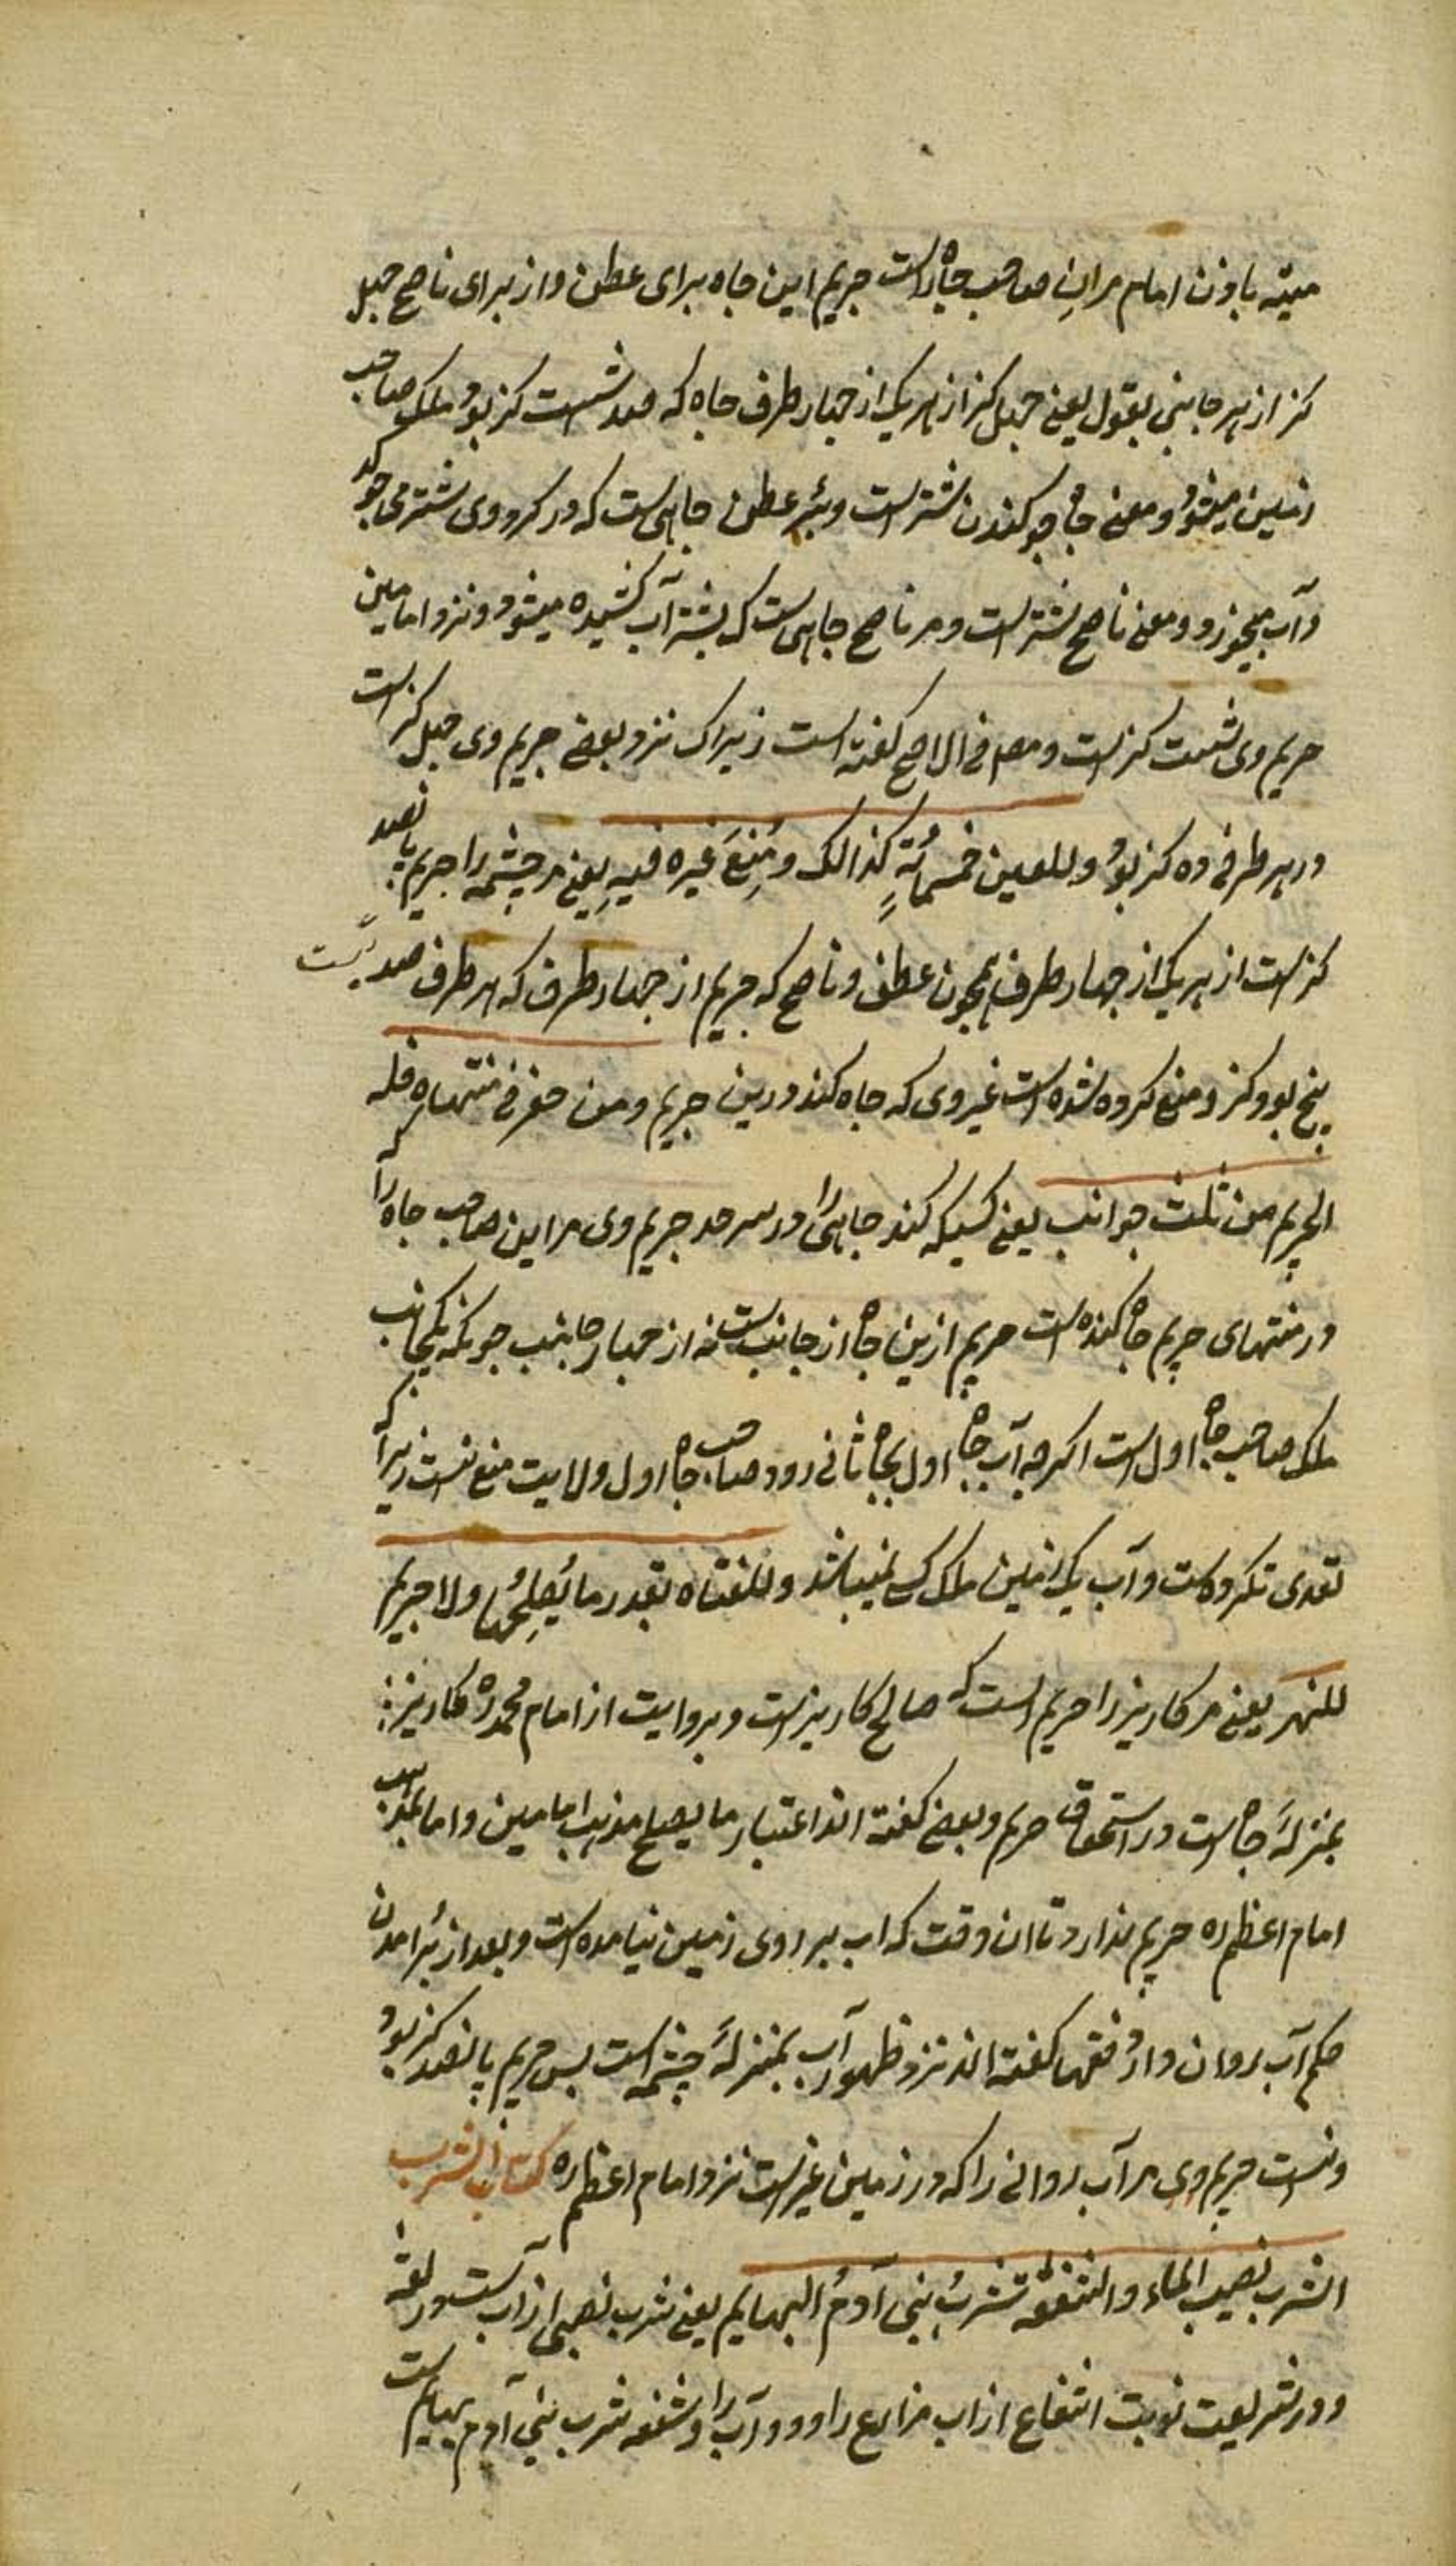 میته باذن امام مران صاحب چاه راست حریم این چاه برای عطن و از برای ناضح چهل
کز از هر جانبی بقول یعنی چهل کز از هر یک از چهار طرف چاه که صد شست کز بود ملک صاحب
زمین میشود و معنی شترست و بئر عطن چاهی است که در کرد وی شتر می
و آب میخورد و معنی ناضح شترست و مر ناضح چاهی است که بشتر آب کشیده میشود و نزد امامین
حریم وی شست کزست و مص فی الاصح کفته است زیراکه نزد بعضی حریم وی چهل کز است
در هر طرفی ده کز بود وللعین خمسمائةٍ کذالک ومُنِعَ غیره فیهِ یعنی مر چشمه را حریم پانصد
کزست از هر یک از چهار طرف همچون عطن و ناضح که حریم از چهار طرف که هر طرف صد بیست
پنج بود کز و منع کرده شده است غیر وی که چاه کند درین حریم ومن حفر فی منتهاه فله
الحریم من ثلث جوانب یعنی کسیکه کند چاهی را در سرحد حریم وی مر این صاحب چاه را که
در منتهای حریم چاه کنده است حریم ازین چاه از جانبست نه از چهار جانب چونکه یکجانب
ملک صاحب چاه اول است اکرچه آب چاه اول بچاه ثانی رود صاحب چاه اول ولایت منع نیست زیرا که
تعدی نکرده است و آب یک زمین ملک کس نمیباشد وللقناة بقدر ما یُصلِحُها ولا حریم
للنهر یعنی مر کاریز را حریم است که صالح کاریزست و بروایت از امام محمد ره کاریز
بمنزلهٔ چاه است در استحقاق حریم و بعضی کفته اند اعتبار ما یصلح مذهب امامین و اما بمذهب
امام اعظم ره حریم ندارد تا ان وقت که اب بر روی زمین نیامده است و بعد از برامدن
حکم آب روان دارد فقها کفته اند نزد ظهور آب بمنزلهٔ چشمه است پس حریم پانصد کز بود
و نیست حریم وی مر آب روانی را که در زمین غیرست نزد امام اعظم ره کتاب الشرب
الشرب نصیب الماء والشفعة شربُ بنی آدمُ البهایم یعنی شرب نصیبی از آب است در لغة
و در شریعت نوبت انتفاع از اب مزارع را و دواب را و شفعه شرب بنی آدم بهایم است